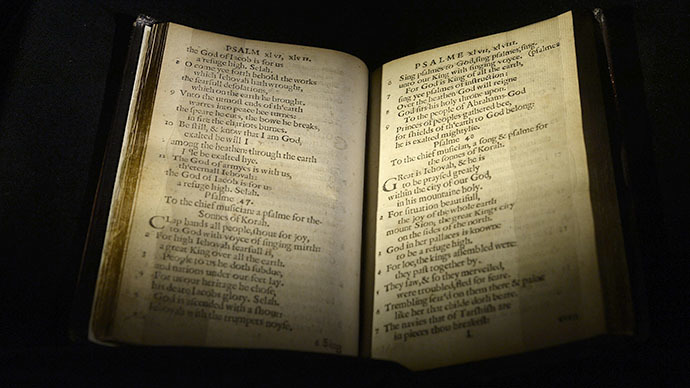 PSALM xlvi, xlvii
the God of Iacob is for us
a refuge high. Selah.
8 O come yee forth behold the works
which Iehovah hath wrought,
the fearfull desolations,
which on the earth he brought.
9 Unto the utmost ends of th'earth
warres into peace hee turnes:
the speare he cuts, the bowe he breaks,
in fire the chariots burnes.
10 Be still, & know that I am God,
exalted be will I
among the heathen: through the earth
I'le be exalted hye.
11 The God of armyes is with us,
th'eternall Iehovah:
the God of Iacob is for us
a refuge high. Selah.
Psalme 47.
To the chief musician a psalme for the
Sonnes of Korah.
CLap hands all people, shout for joy,
to God with voyce of singing mirth:
2 For high Iehovah fearfull is,
a great King over all the earth.
3 People to us he doth subdue,
and nations under our feet lay.
4 For us our heritage he chose,
his deare Iacobs glory. Selah.
5 God is ascended with a shout:
Iehovah with the trumpets noyse.
6 Sing
PSALME xlvii, xlviii.
6 Sing psalmes to God, sing psalmes, sing
unto our King with singing voyce. (psalmes
7 For God is King of all the earth,
sing yee psalmes of instruction:
8 Over the heathen God will reigne
God sits his holy throne upon.
9 To the people of Abrahams God
Princes of peoples gathered bee,
for shields of th'earth to God belong:
he is exalted mightylie.
Psalme 48
To the chief musician, a song & psalme for
the sonnes of Korah.
GReat is Iehovah, & he is
to be praysed greatly
within the city of our God,
in his mountaine holy.
2 For situation beautifull,
the joy of the whole earth
mount Sion; the great Kings city
on the sides of the north.
3 God in her pallaces is knowne
to be a refuge high.
4 For loe, the kings assembled were:
they past together by.
5 They saw, & so they merveiled,
were troubled, fled for feare.
6 Trembling seiz'd on them there & paine
like her that childe doth beare.
7 The navies that of Tarshish are
in pieces thou breakest:
L even